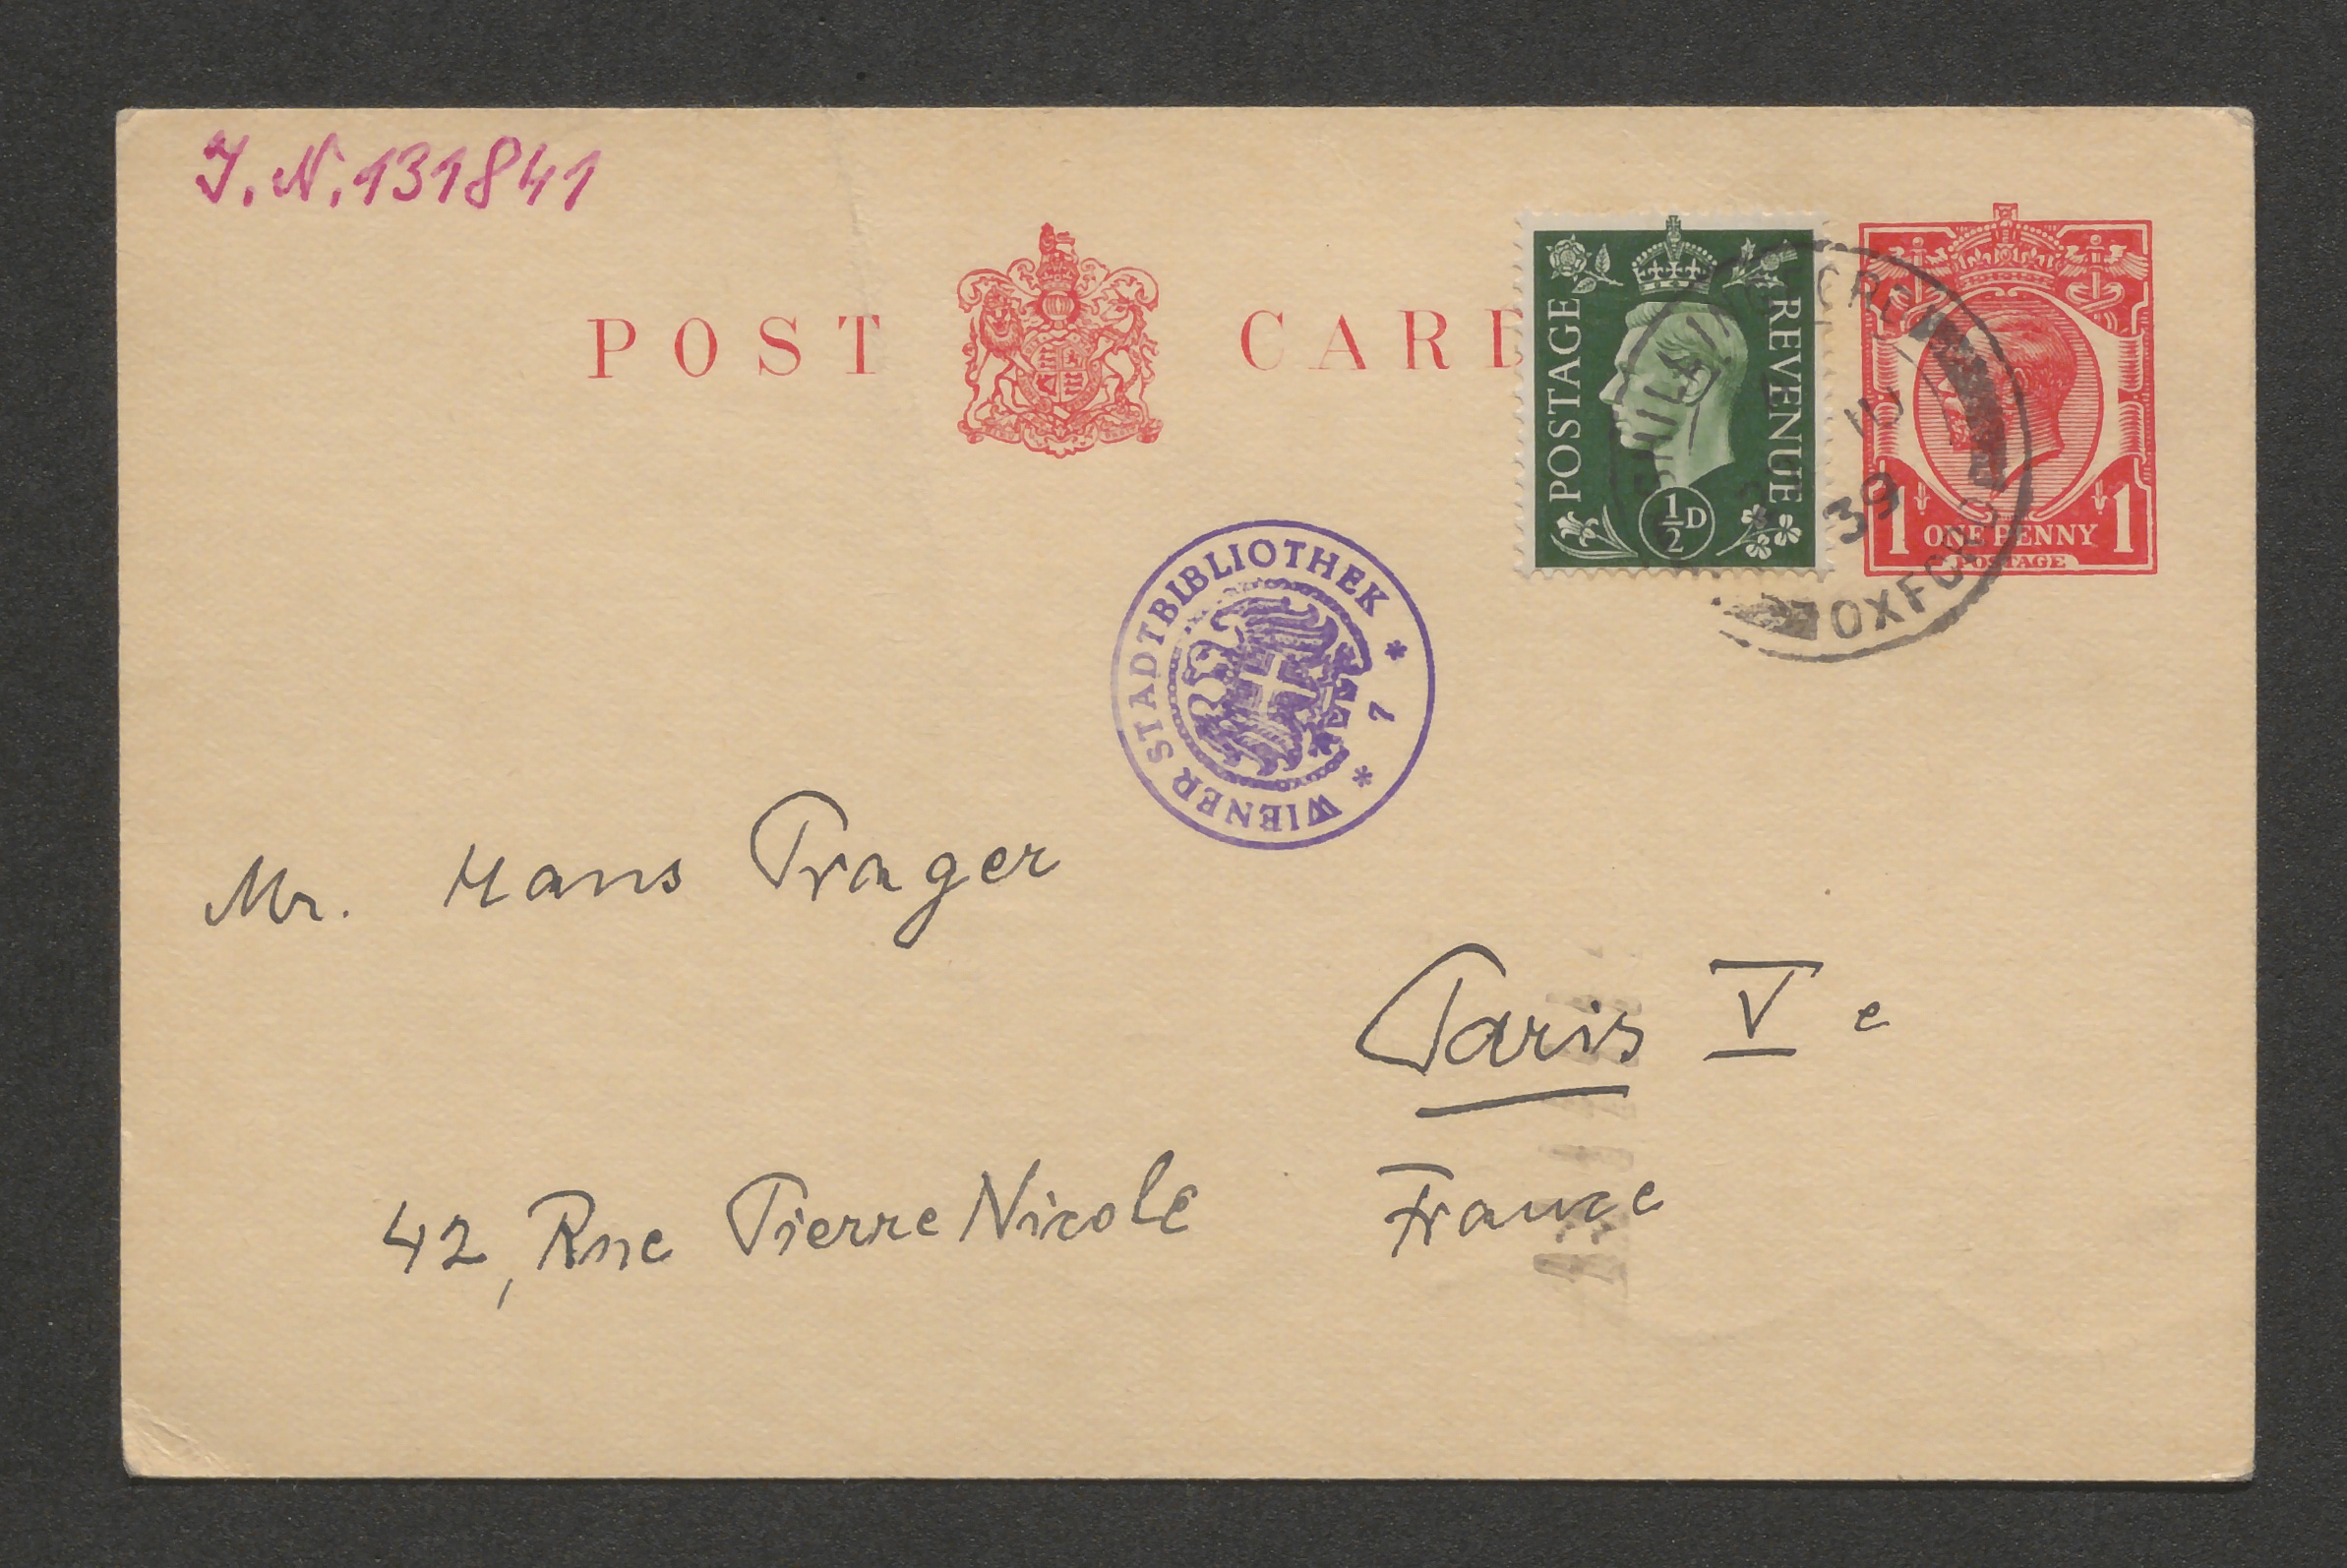 J.N. 131841
POST CARD
POSTAGE REVENUE
½D
1 ONE PENNY 1
POSTAGE
39
OXFORD
WIENER STADTBIBLIOTHEK * 7 *
Mr. Hans Prager
Paris V e
42, Rue Pierre Nicole France